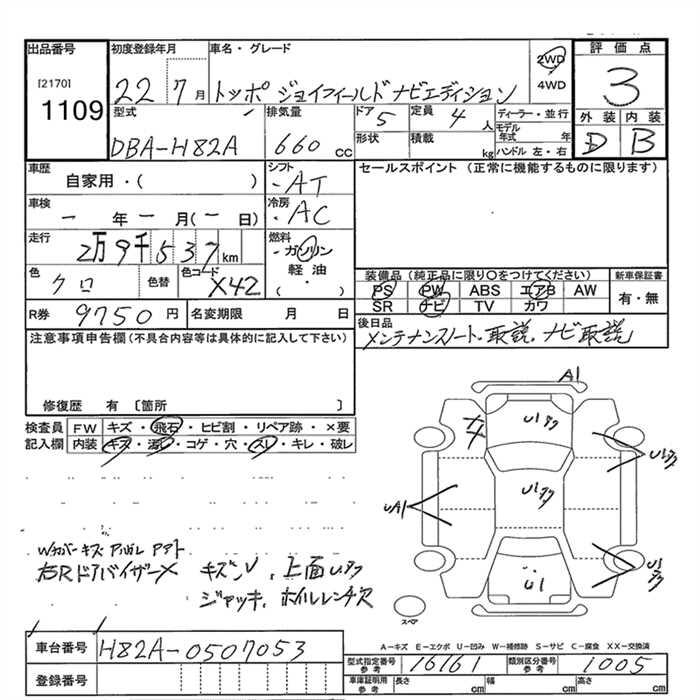 出品番号
[2170]
1109
初度登録年月
22 7月
車名・グレード
トッポ ジョイフィールド ナビエディション
2WD
4WD
評価点
3
外装 内装
D B
型式
DBA-H82A
排気量
660 CC
ドア 5
形状
定員 4 人
積載 kg
ディーラー・並行
モデル年式 年
ハンドル 左・右
車歴
自家用・( )
シフト
・AT
セールスポイント (正常に機能するものに限ります)
車検
一 年 一 月(一 日)
冷房
・AC
走行
2万9千537km
燃料
・ガソリン
軽油
( )
色
クロ
色替
色コード
X42
装備品(純正品に限り○をつけてください)
PS PW ABS エアB AW
SR ナビ TV カワ
新車保証書
有・無
R券 9750円
名変期限 月 日
後日品
メンテナンスノート・取説、ナビ取説
注意事項申告欄(不具合内容等は具体的に記入して下さい)
修復歴 有 〔箇所 〕
検査員 FW キズ・飛石・ヒビ割・リペア跡・×要
記入欄 内装 キズ・汚れ・コゲ・穴・スレ・キレ・破レ
A1
U1アタ
U1アタ
U1アタ
UA1
U1
U1アタ
スペア
Wカバーキズ
右Rドアバイザー×
キズレ、上面Uアタ
ジャッキ、ホイルレンチ欠
A－キズ E－エクボ U－凹み W－補修跡 S－サビ C－腐食 XX－交換済
車台番号 H82A-0507053
登録番号
型式指定番号 参考 16161
類別区分番号 参考 1005
車庫証明用 参考 長さ cm 幅 cm 高さ cm